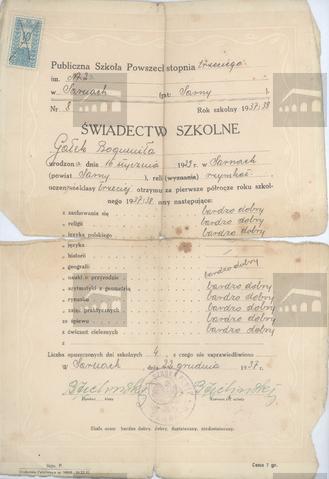 Publiczna Szkoła Powszechna stopnia trzeciego
im. Nr 2
w Sarnach (pat: Sarny ).
Nr. 8 Rok szkolny 1937/38
ŚWIADECTWO SZKOLNE
Gołek Bogumiła
urodzona dnia 16 stycznia 1929 r. w Sarnach
(powiat Sarny ), reli (wyznania) rzymsko-
uczen klasy trzeciej otrzymu za pierwsze półrocze roku szkol-
nego 1937/38. następujące:
z zachowania się bardzo dobry
z religii bardzo dobry
z języka polskiego bardzo dobry
z języka
z historii
z geografii
z nauki o przyrodzie bardzo dobry
z arytmetyki z geometrią bardzo dobry
z rysunku bardzo dobry
z zajęć praktycznych bardzo dobry
ze śpiewu bardzo dobry
z ćwiczeń cielesnych bardzo dobry
z
Liczba opuszczonych dni szkolnych 4 z czego nie usprawiedliwiono
w Sarnach dnia 22 grudnia 1937 r.
Skala ocen: bardzo dobry, dobry, dostateczny, niedostateczny.
Cena 7 gr.